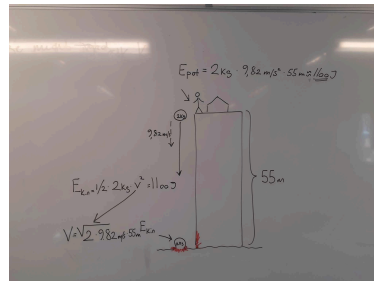 E_pot = 2kg 9,82 m/s² · 55m ≈ 1100J
2kg
9,82 m/s²
55m
E_kin = 1/2 · 2kg · v² = 1100J
V = √2 · 9,82 m/s² · 55m